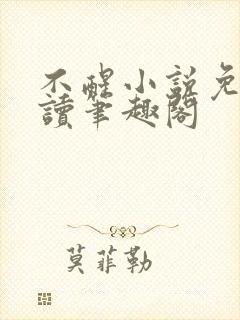 不醒小说免
讀筆趣閣
莫菲勒